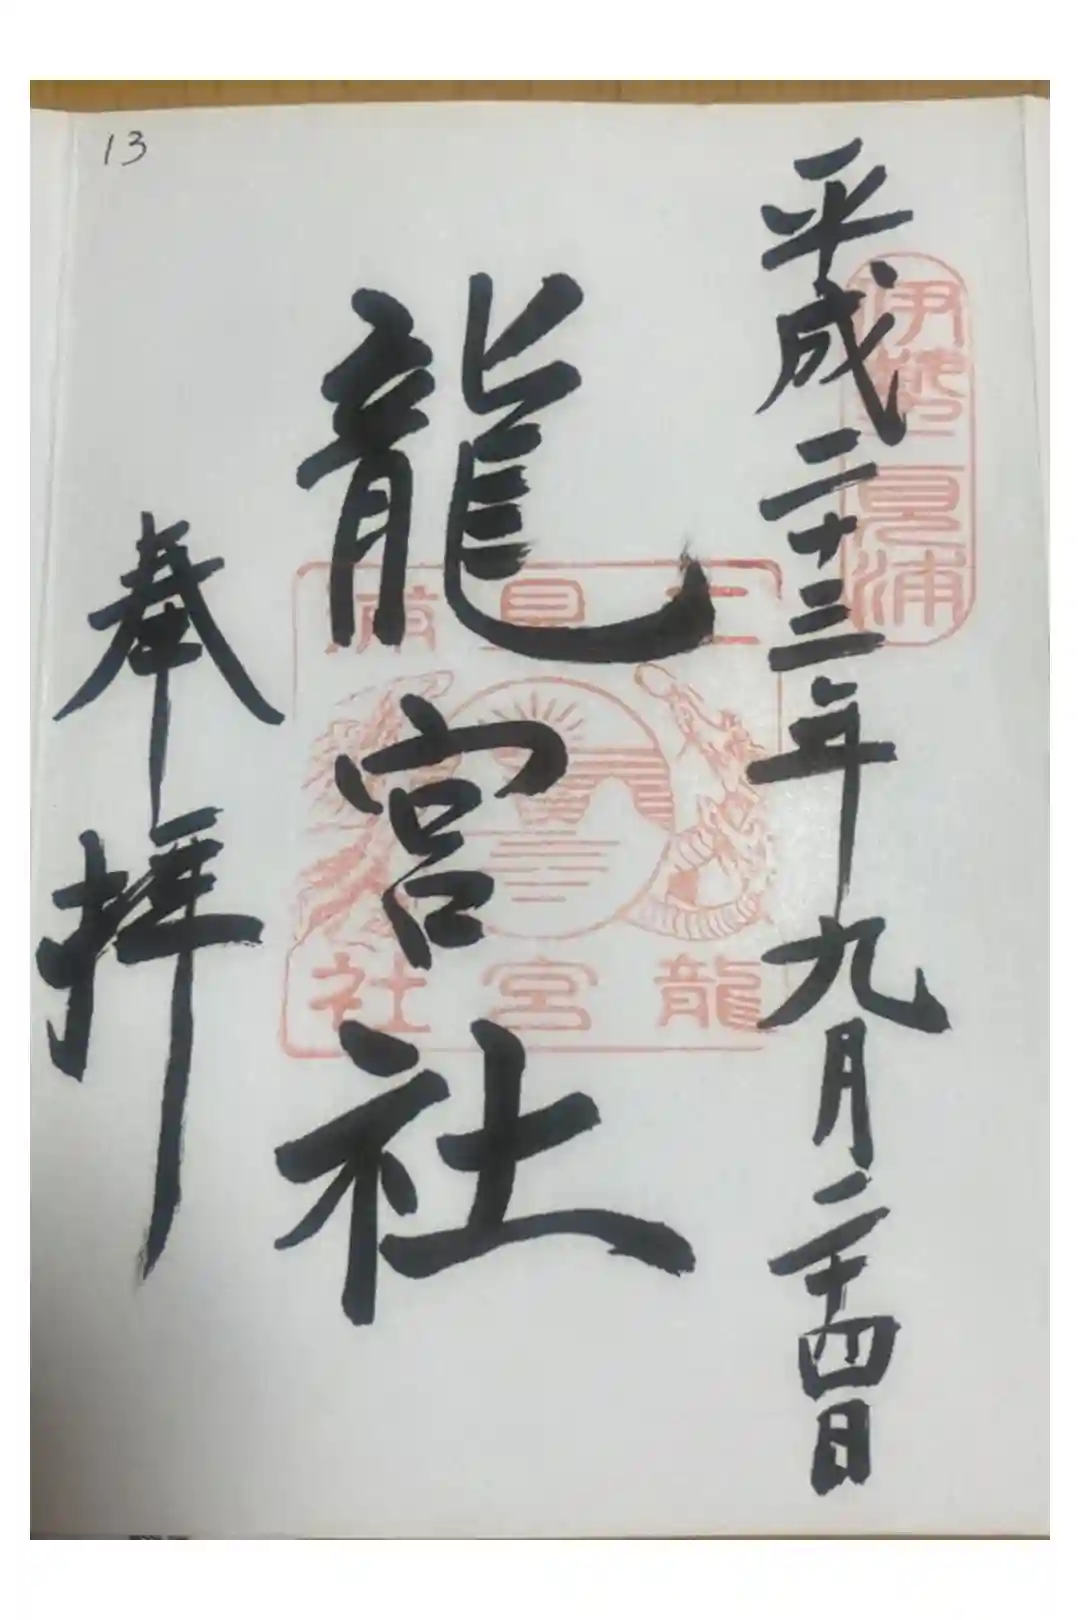 13
平成二十三年九月二十四日
伊勢二見浦
龍宮社
二見
龍宮社
奉拝